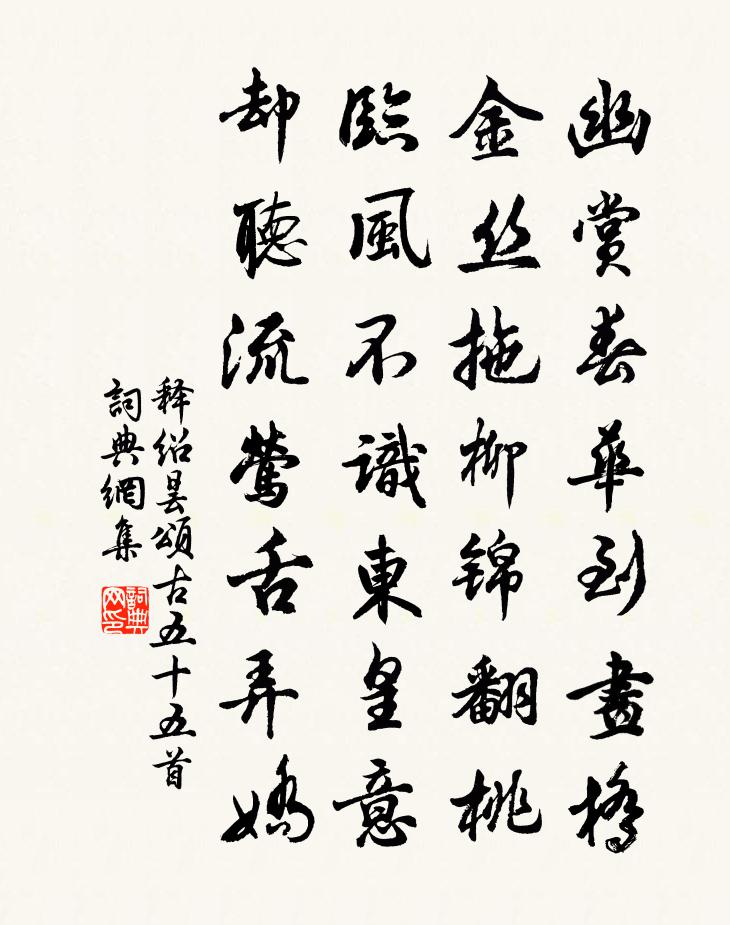 幽賞春華到畫橋
金丝拖柳锦翻桃
臨風不識東皇意
却聽流鶯舌弄嬌
释绍昙頌古五十五首
詞典網集
詞典
网印